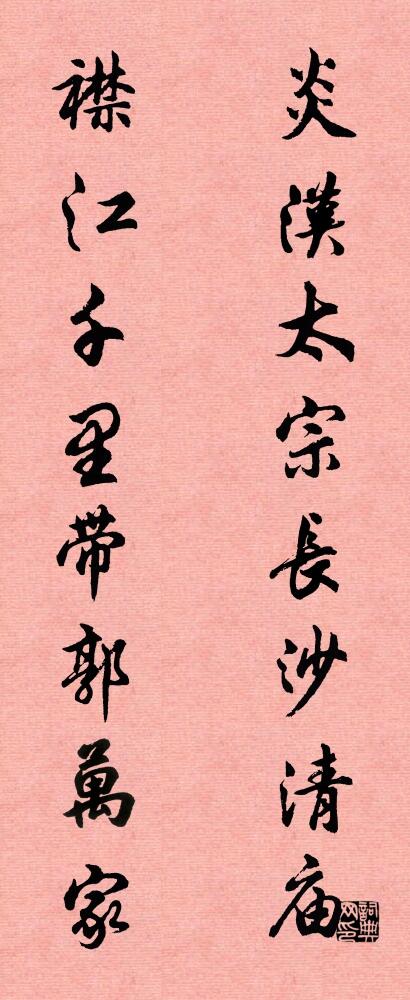 炎漢太宗長沙清庙
襟江千里带郭萬家
詞典网印